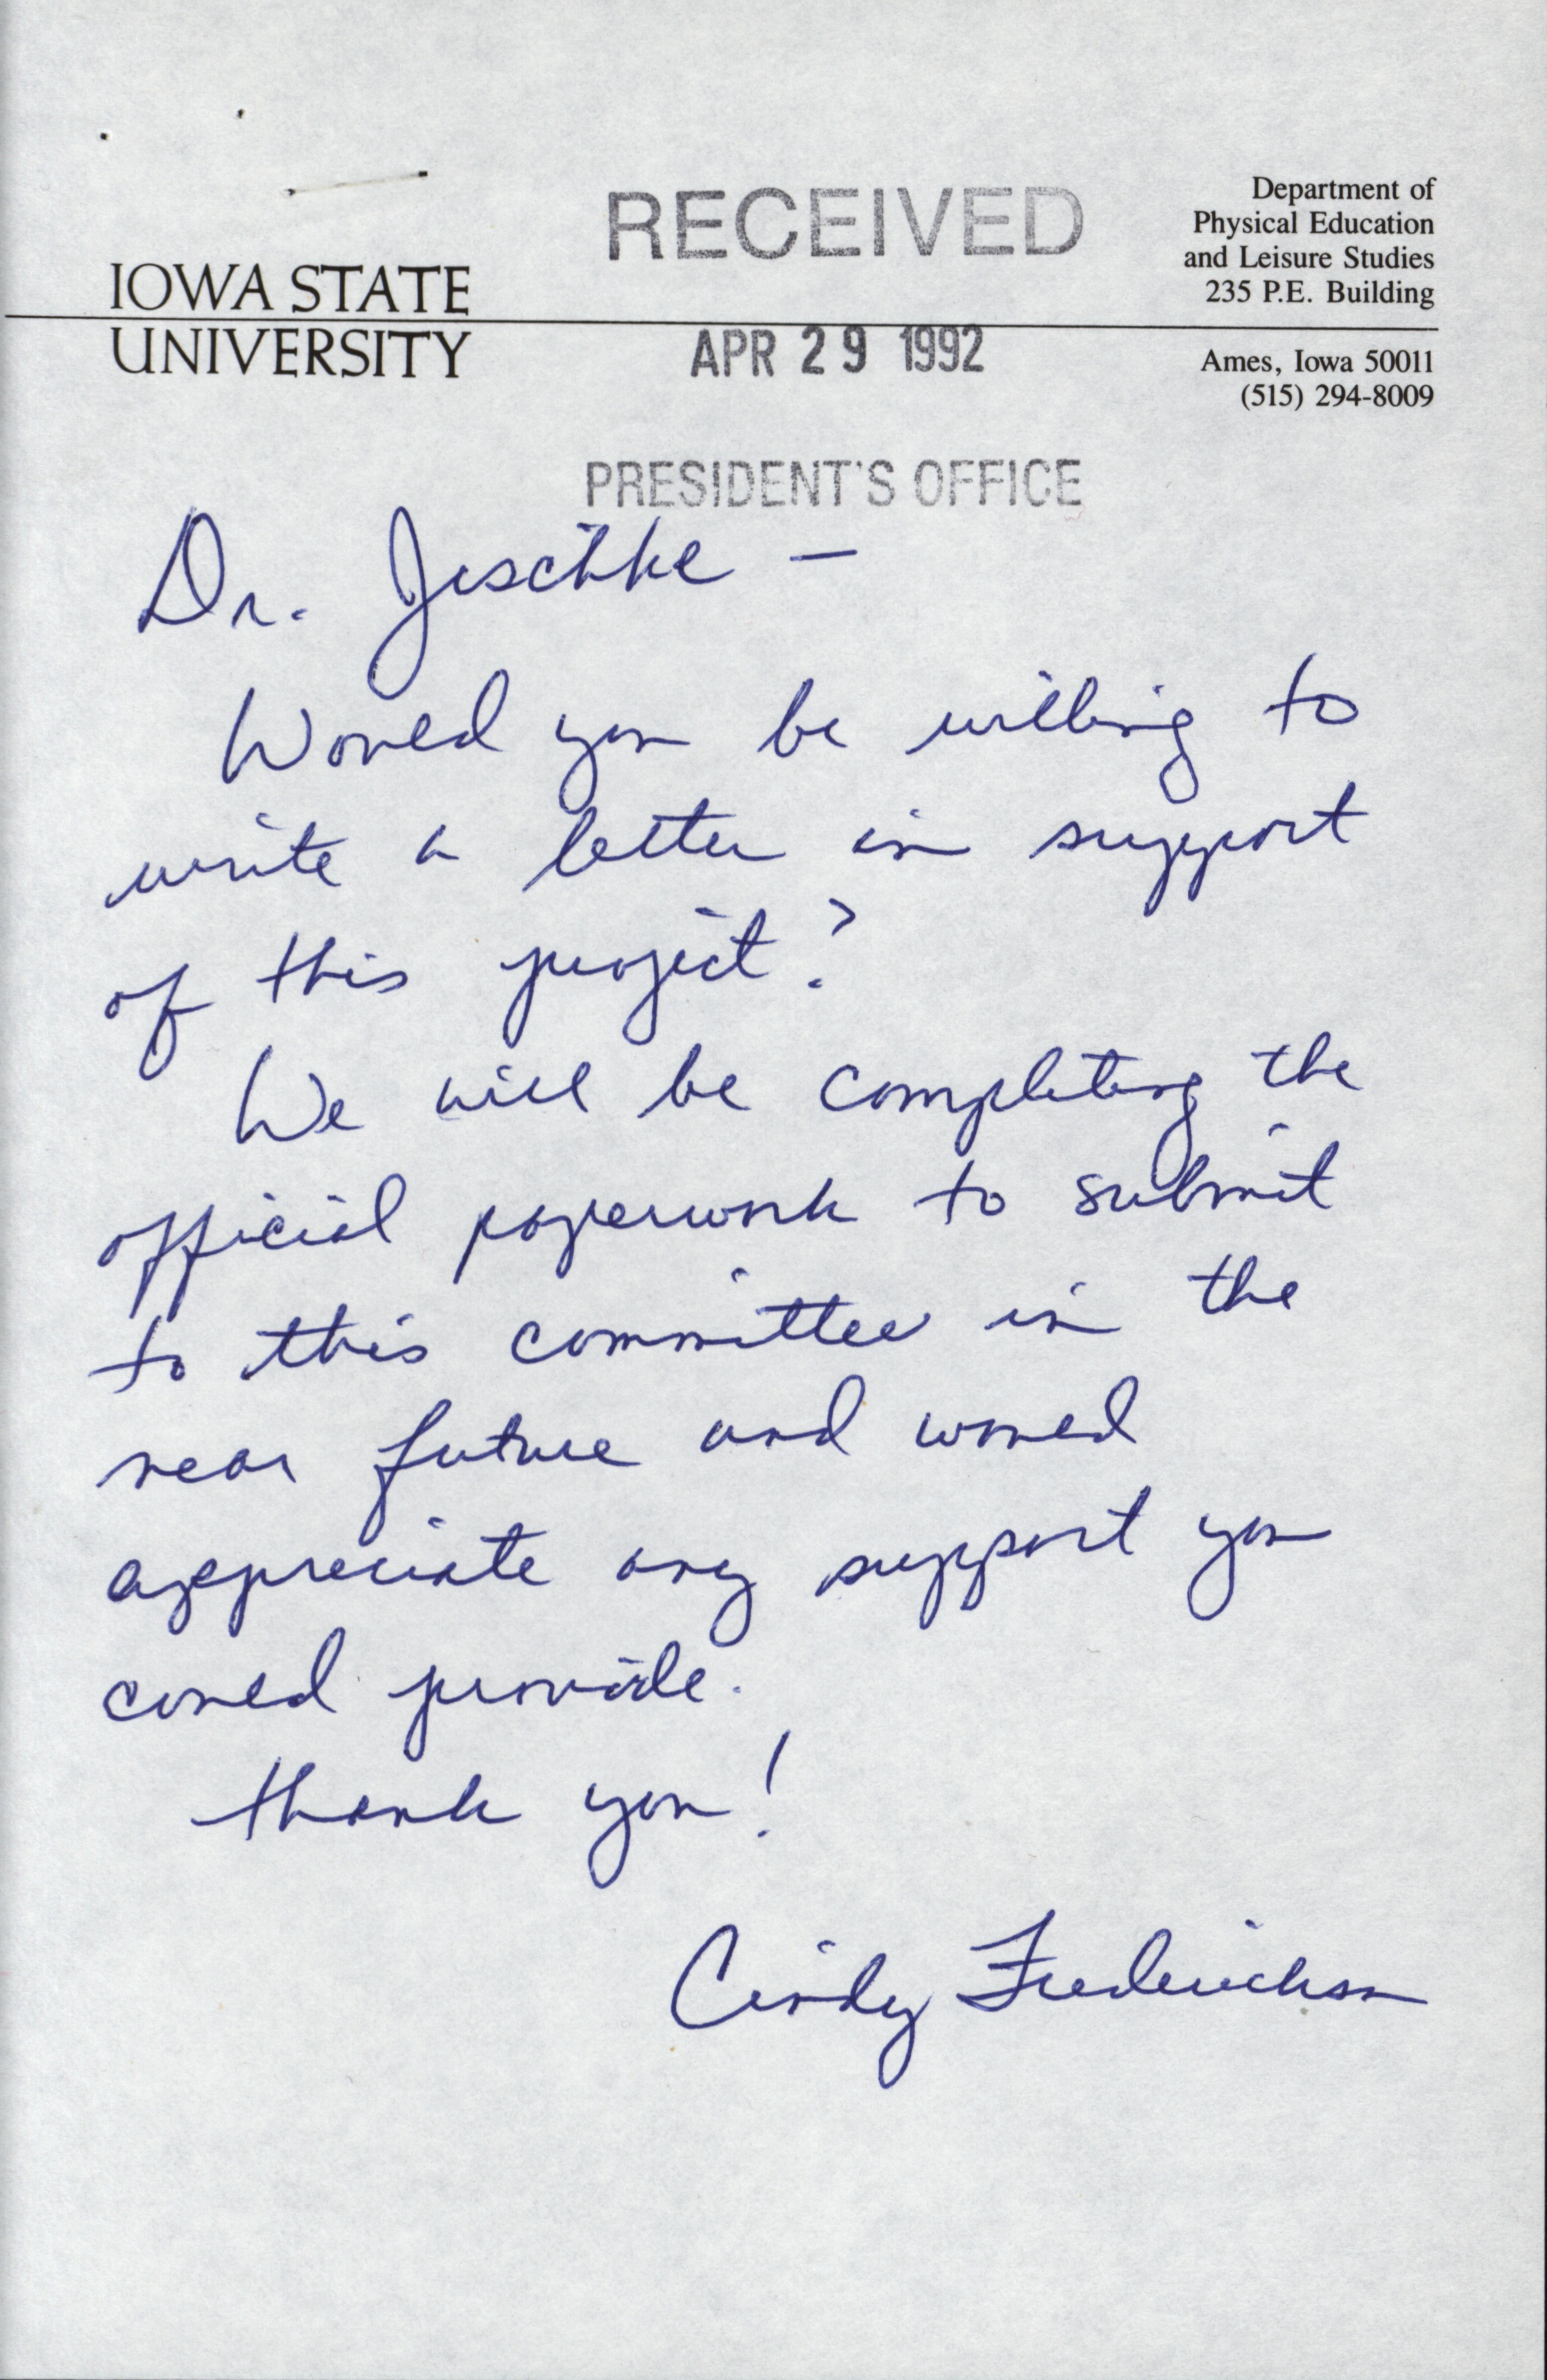 IOWA STATE
UNIVERSITY
RECEIVED
APR 29 1992
PRESIDENT'S OFFICE
Department of
Physical Education
and Leisure Studies
235 P.E. Building
Ames, Iowa 50011
(515) 294-8009
Dr. Jischke –
Would you be willing to
write a letter in support
of this project?
We will be completing the
official paperwork to submit
to this committee in the
near future and would
appreciate any support you
could provide.
Thank you!
Cindy Frederickson